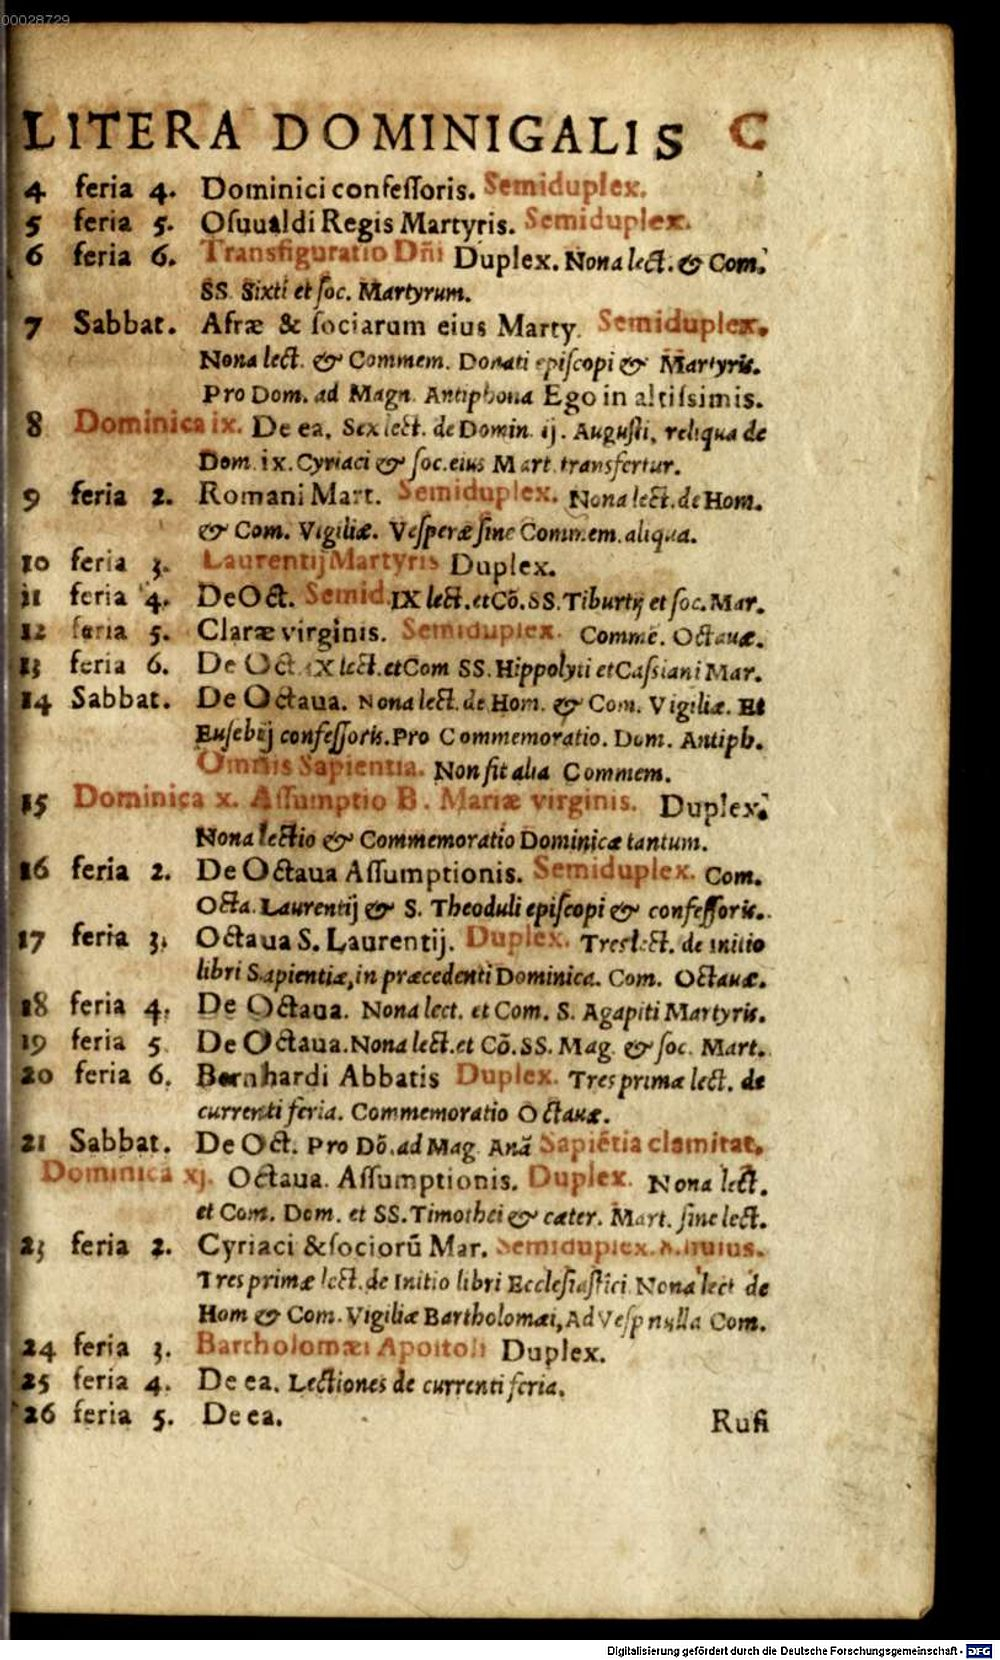 00028729
LITERA DOMINIGALIS C
4 feria 4. Dominici confeſſoris. Semiduplex.
5 feria 5. Oſuualdi Regis Martyris. Semiduplex.
6 feria 6. Transfiguratio Dn̄i Duplex. Nona lect. & Com.
SS. Sixti et ſoc. Martyrum.
7 Sabbat. Afræ & ſociarum eius Marty. Semiduplex.
Nona lect. & Commem. Donati epiſcopi & Martyris.
Pro Dom. ad Magn. Antiphona Ego in altiſsimis.
8 Dominica ix. De ea. Sex lect. de Domin. ij. Auguſti, reliqua de
Dom. ix. Cyriaci & ſoc. eius Mart. transfertur.
9 feria 2. Romani Mart. Semiduplex. Nona lect. de Hom.
& Com. Vigiliæ. Veſperæ ſine Commem. aliqua.
10 feria 3. Laurentij Martyris Duplex.
11 feria 4. De Oct. Semid. IX lect. et Cō. SS. Tiburtij et ſoc. Mar.
12 feria 5. Claræ virginis. Semiduplex. Comme. Octauæ.
13 feria 6. De Oct. IX lect. et Com SS. Hippolyti et Caſsiani Mar.
14 Sabbat. De Octaua. Nona lect. de Hom. & Com. Vigiliæ. Et
Euſebij confeſſoris. Pro Commemoratio. Dom. Antiph.
Omnis Sapientia. Non fit alia Commem.
15 Dominica x. Aſſumptio B. Mariæ virginis. Duplex.
Nona lectio & Commemoratio Dominicæ tantum.
16 feria 2. De Octaua Aſſumptionis. Semiduplex. Com.
Octa. Laurentij & S. Theoduli epiſcopi & confeſſoris.
17 feria 3. Octaua S. Laurentij. Duplex. Tres lect. de initio
libri Sapientiæ, in præcedenti Dominica. Com. Octauæ.
18 feria 4. De Octaua. Nona lect. et Com. S. Agapiti Martyris.
19 feria 5. De Octaua. Nona lect. et Cō. SS. Mag. & ſoc. Mart.
20 feria 6. Bernhardi Abbatis Duplex. Tres primæ lect. de
currenti feria. Commemoratio Octauæ.
21 Sabbat. De Oct. Pro Dō. ad Mag. Anā Sapiētia clamitat.
Dominica xj. Octaua. Aſſumptionis. Duplex. Nona lect.
et Com. Dom. et SS. Timothei & cæter. Mart. ſine lect.
23 feria 2. Cyriaci & ſociorū Mar. Semiduplex. 8. huius.
Tres primæ lect. de Initio libri Eccleſiaſtici Nona lect de
Hom & Com. Vigiliæ Bartholomæi, Ad Veſp nulla Com.
24 feria 3. Bartholomæi Apoſtoli Duplex.
25 feria 4. De ea. Lectiones de currenti feria.
26 feria 5. De ea.
Rufi
Digitalisierung gefördert durch die Deutsche Forschungsgemeinschaft - DFG